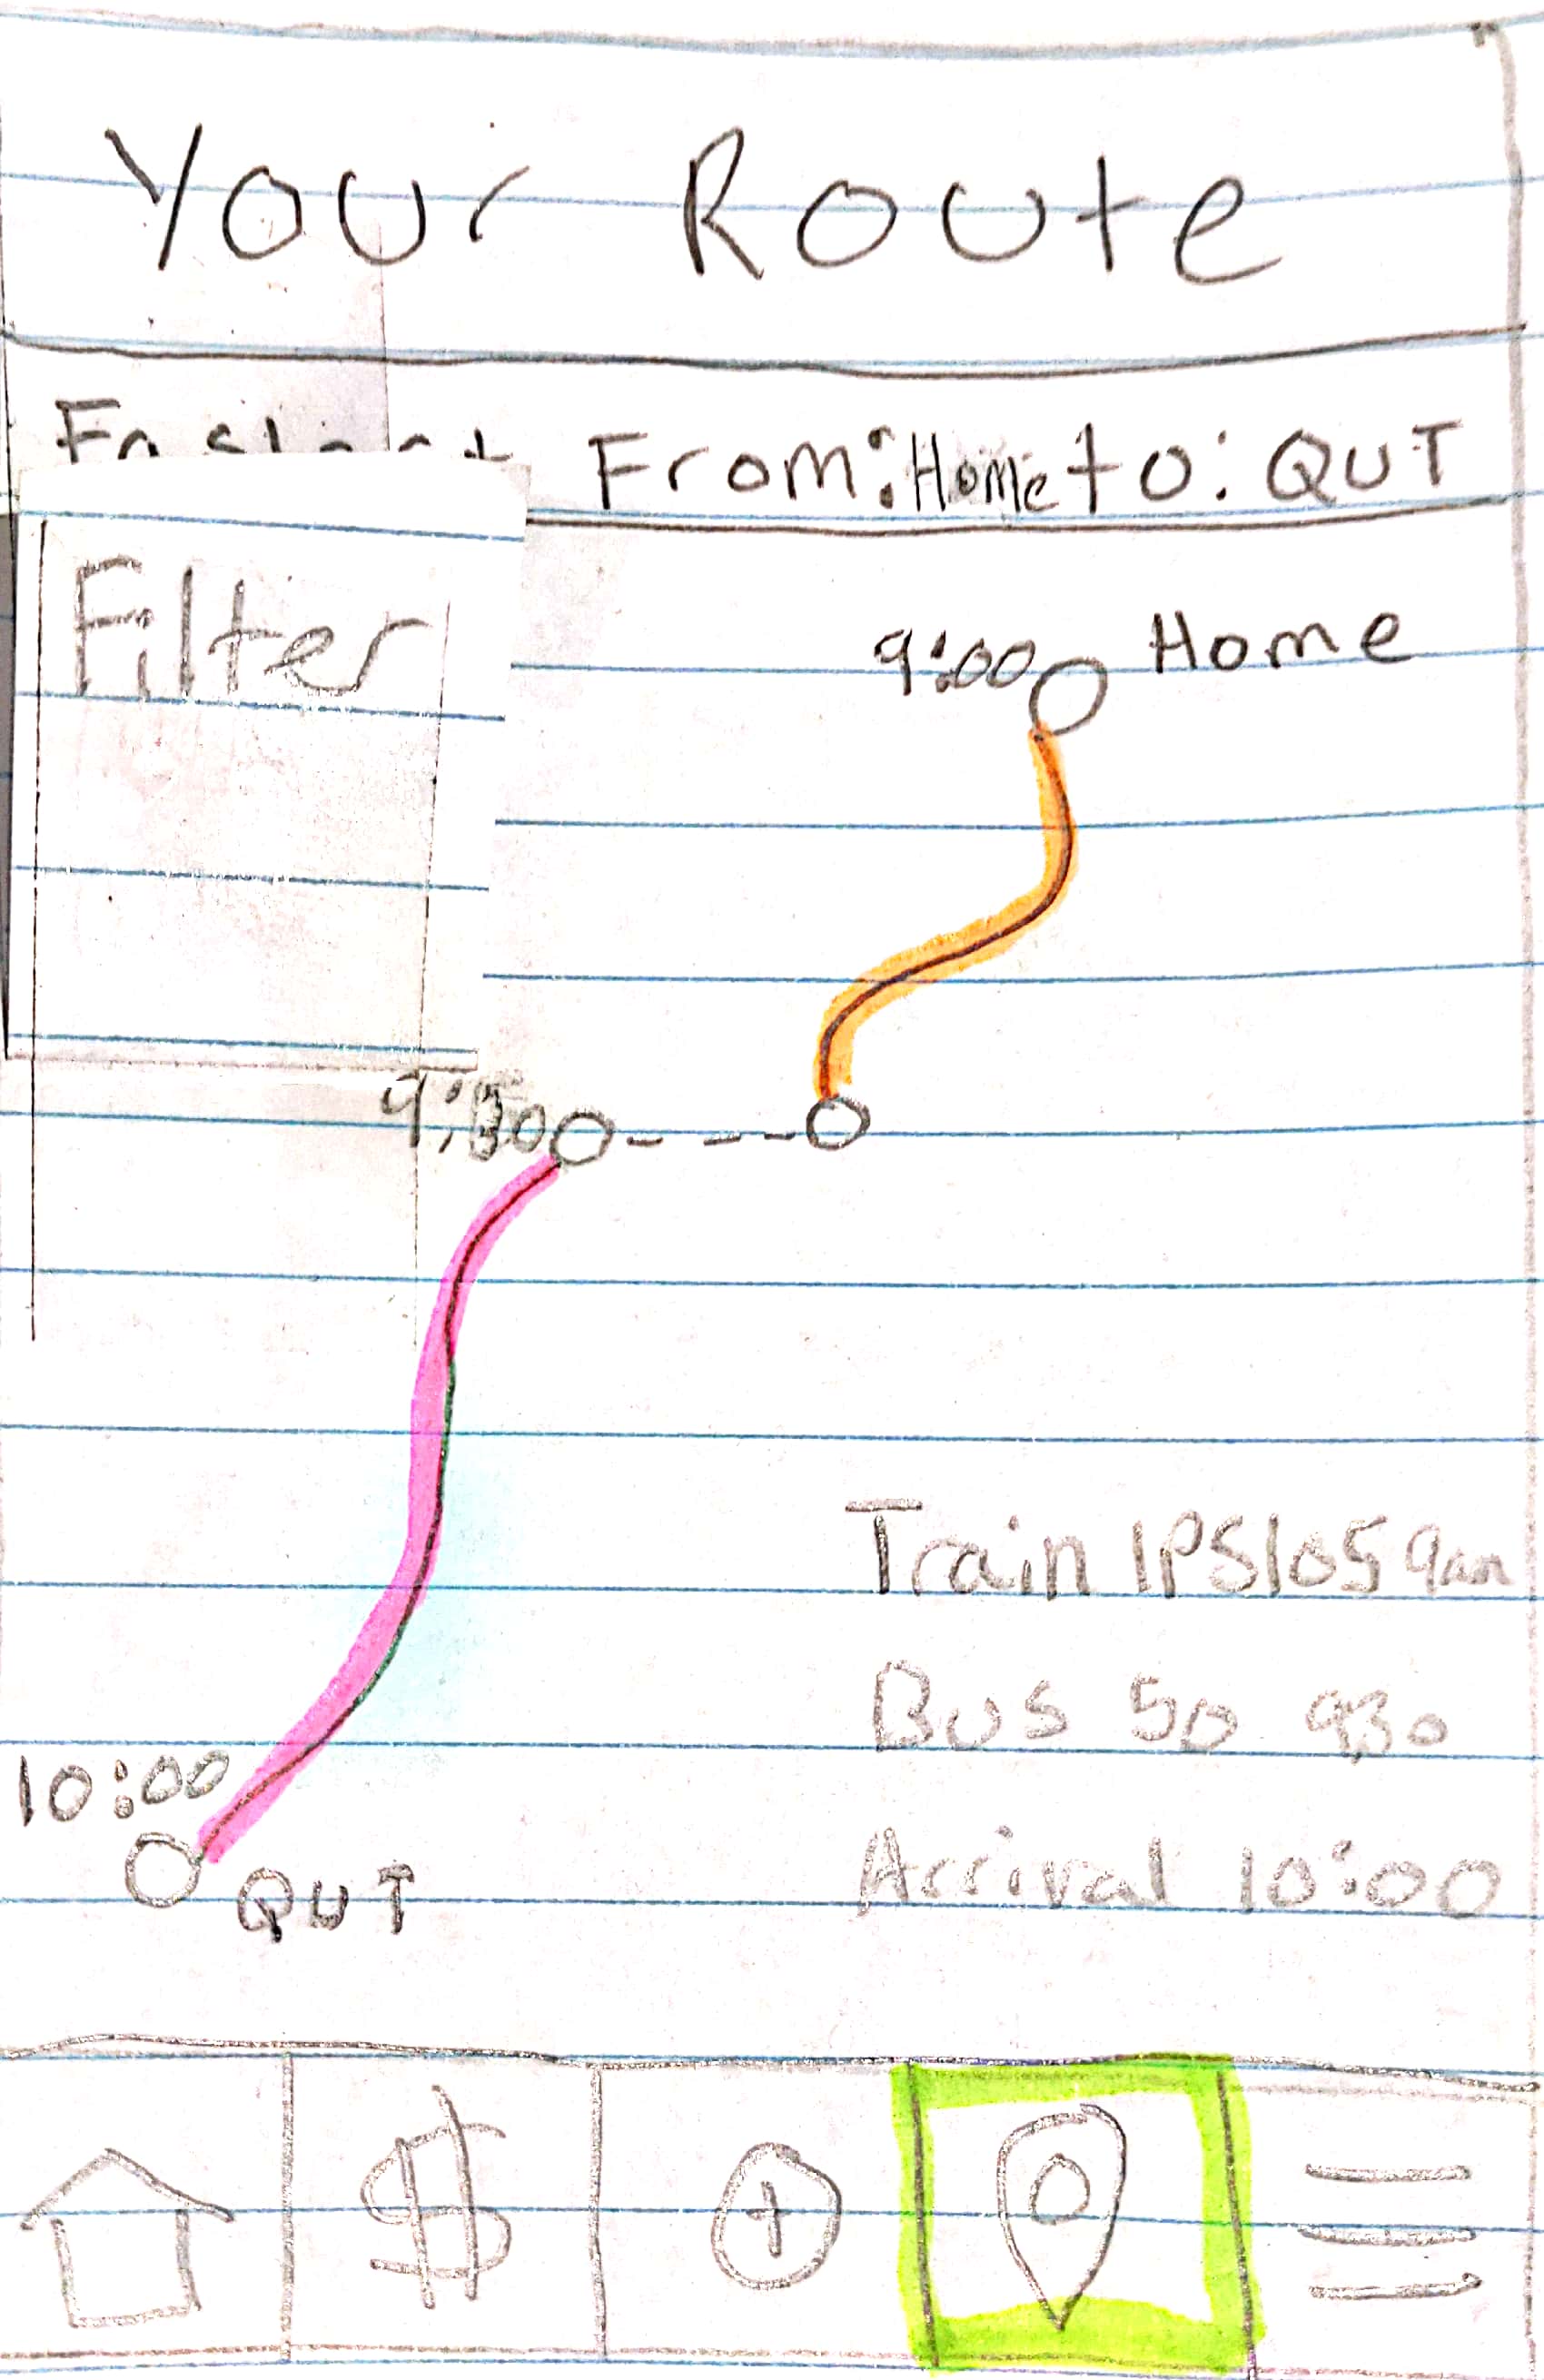 Your Route
From: Home to: QUT
Filter
9:00 Home
9:30
Train IPS105 9am
Bus 50 930
10:00
Arrival 10:00
QUT
$
+